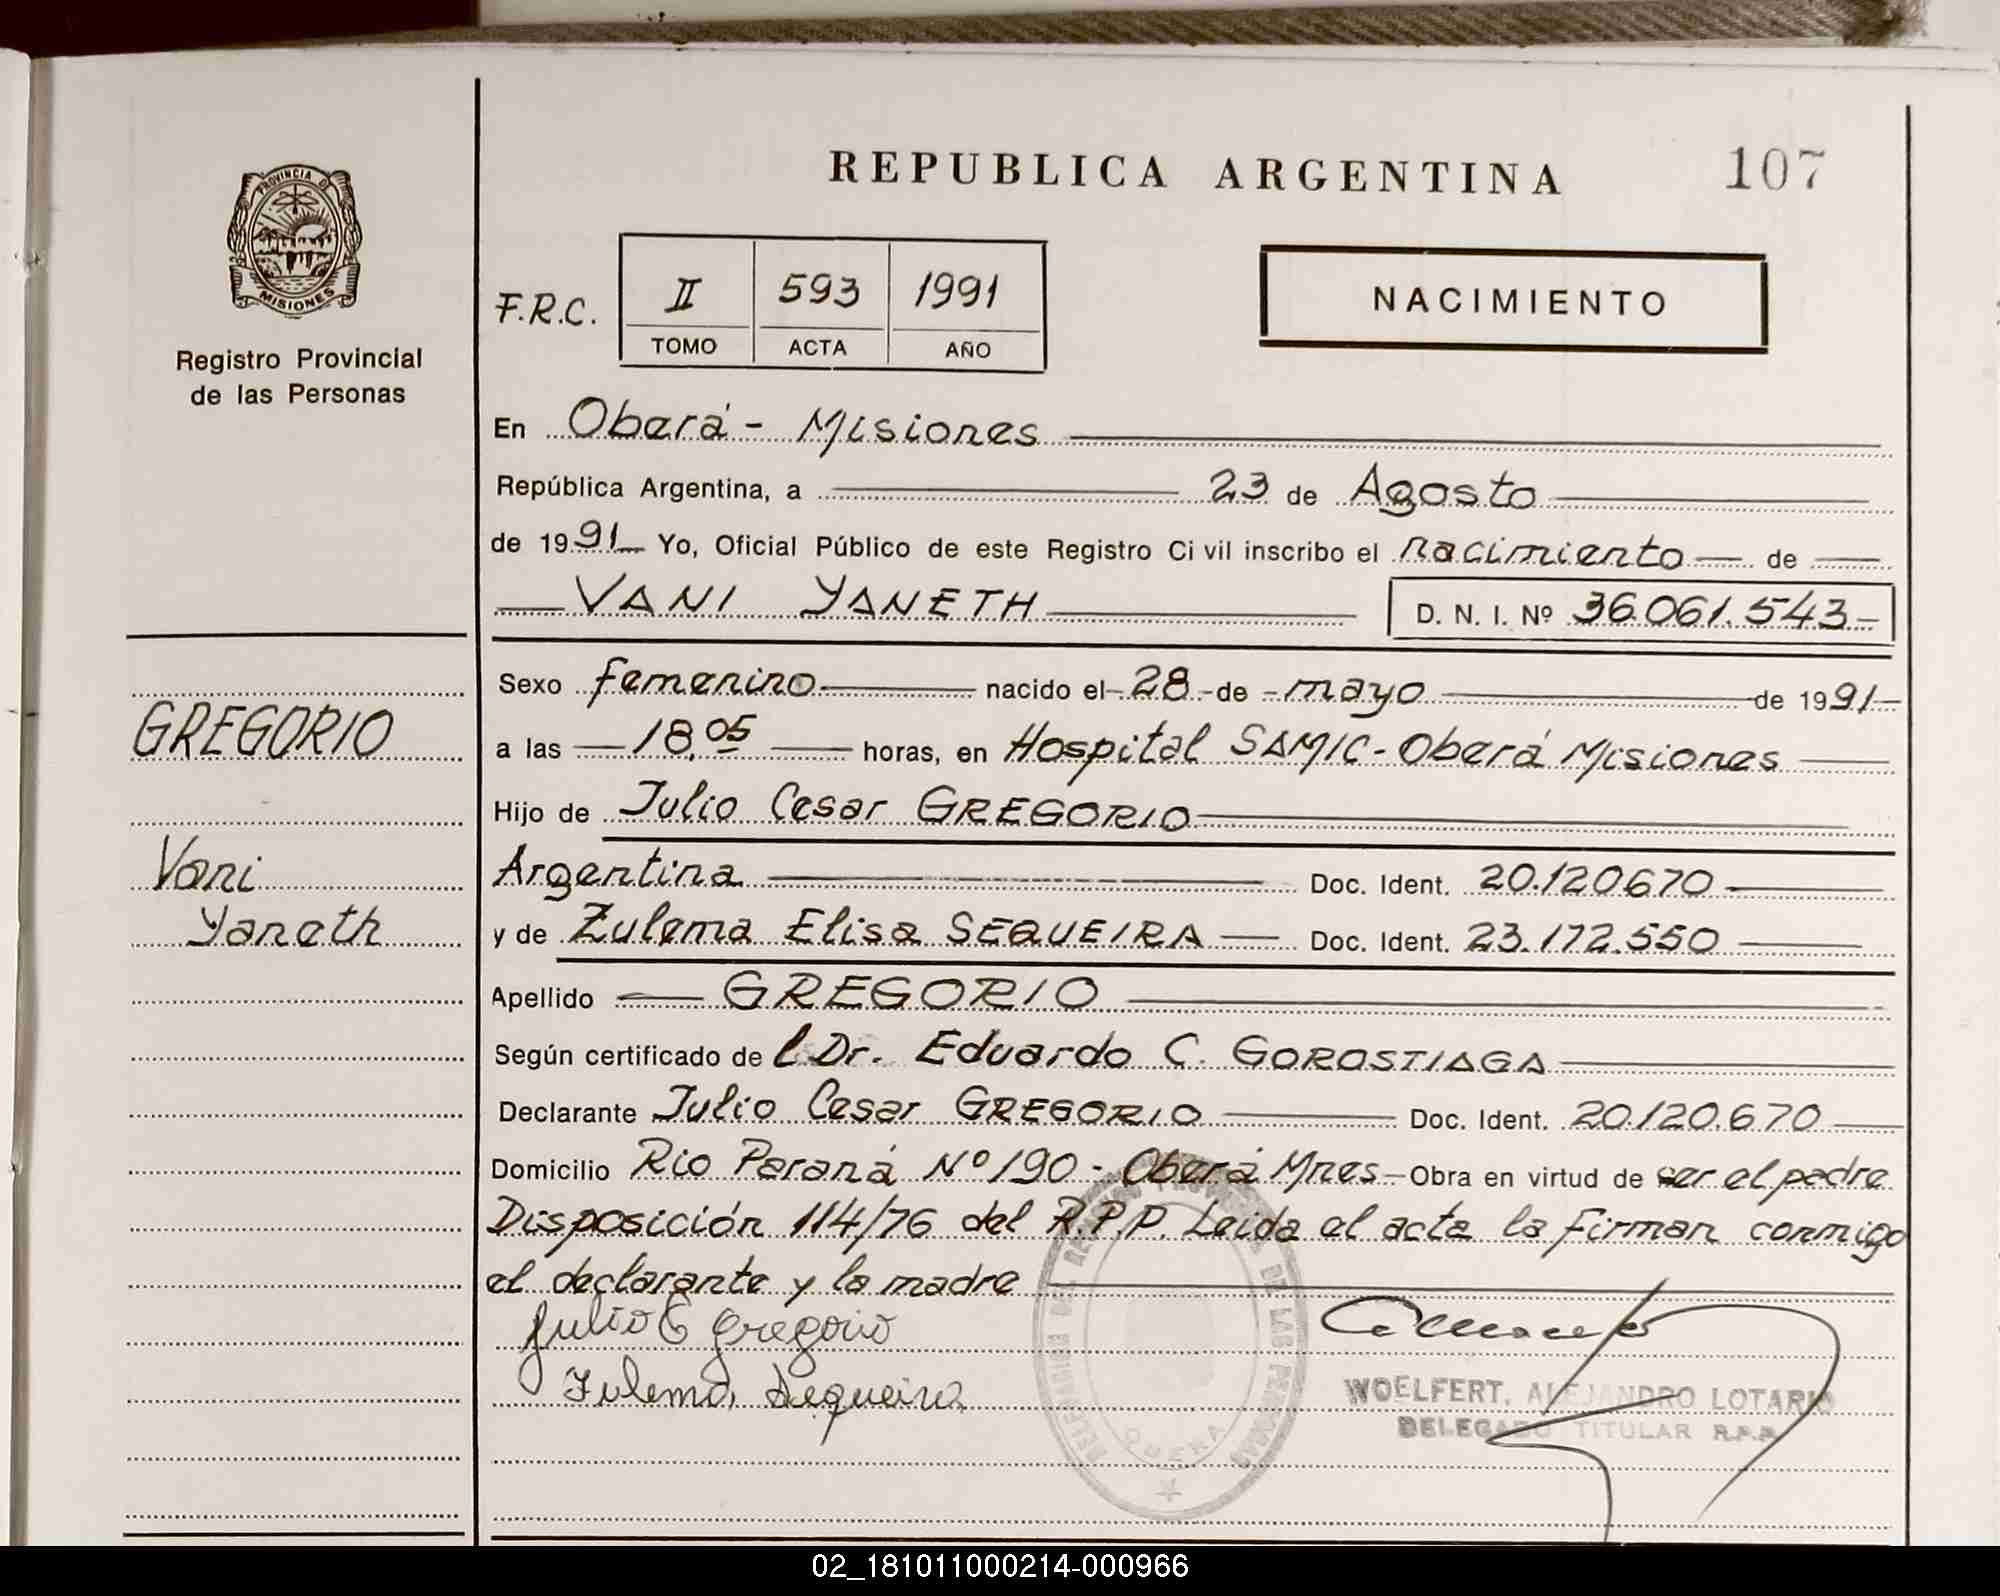 REPUBLICA ARGENTINA
107
PROVINCIA DE
MISIONES
Registro Provincial
de las Personas
F.R.C.
II 593 1991
TOMO ACTA AÑO
NACIMIENTO
En Oberá - Misiones
República Argentina, a 23 de Agosto
de 1991 Yo, Oficial Público de este Registro Civil inscribo el nacimiento de
VANI YANETH D. N. I. Nº 36.061.543-
Sexo femenino nacido el 28 de mayo de 1991
a las 18,05 horas, en Hospital SAMIC - Oberá Misiones
Hijo de Julio Cesar GREGORIO
Argentina Doc. Ident. 20.120670
y de Zulema Elisa SEQUEIRA Doc. Ident. 23.172.550
Apellido GREGORIO
Según certificado del Dr. Eduardo C. GOROSTIAGA
Declarante Julio Cesar GREGORIO Doc. Ident. 20.120.670
Domicilio Rio Paraná Nº 190 - Oberá Mnes - Obra en virtud de ser el padre
Disposición 114/76 del R.P.P. Leida el acta la firman conmigo
el declarante y la madre
Julio C Gregorio
Zulema Sequeira
GREGORIO
Vani
Yaneth
WOELFERT, ALEJANDRO LOTARIO
DELEGADO TITULAR R.P.P.
DE LAS PERSONAS
02_181011000214-000966